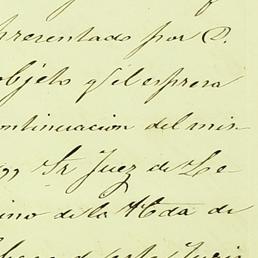 presentado por D.
objeto qe el espresa
continuacion del mis-
Sr Juez de Le-
ino de la Hda de